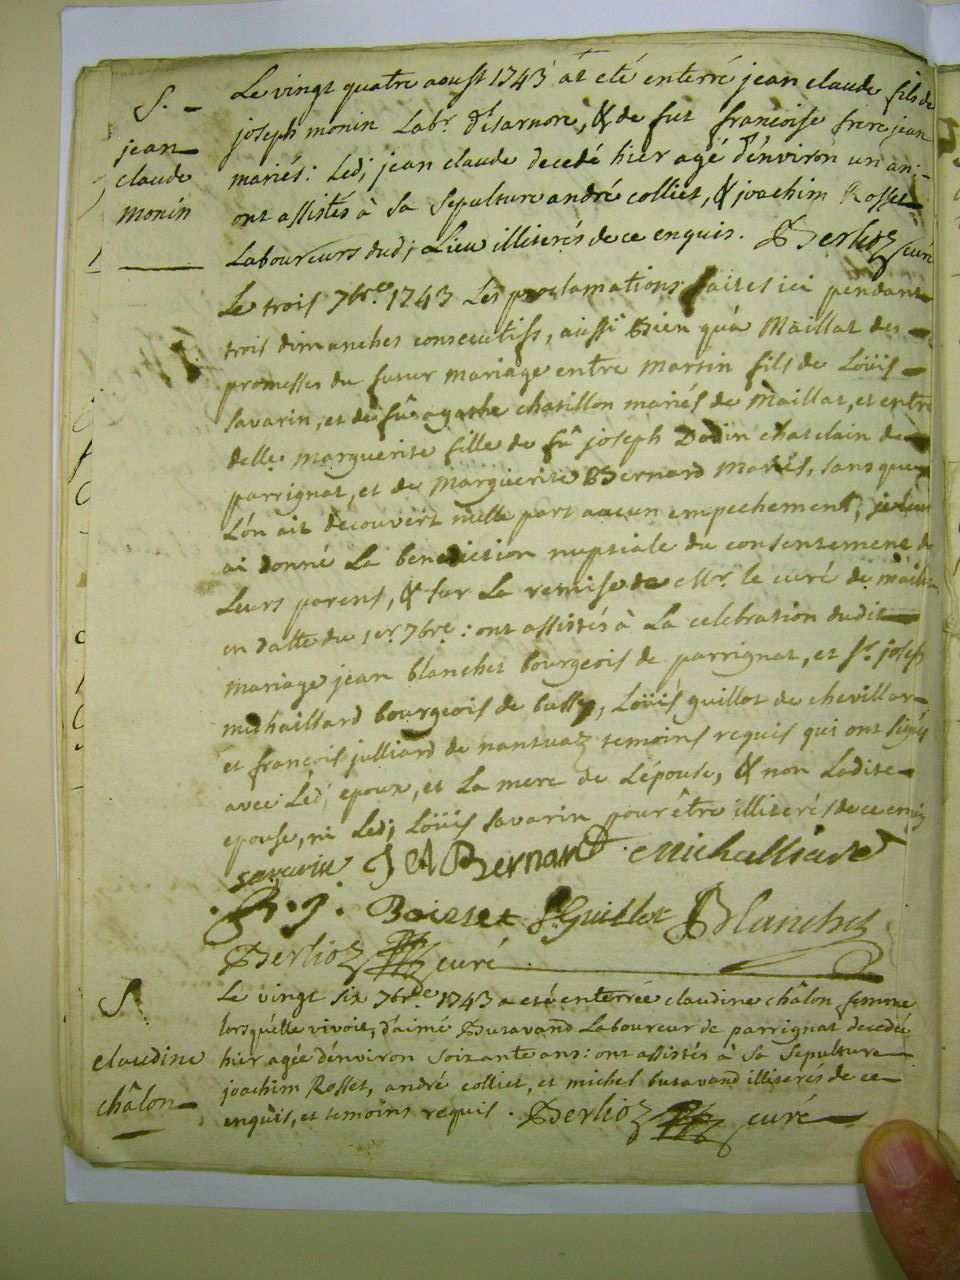 S. -
jean
claude
monin
Le vingt quatre aoust 1743 at eté enterré jean claude fils de
joseph monin Labr. d'isarnore, & de fut francoise frere jean
mariés: Led; jean claude decedé hier agé d'environ un an:
ont assistés à sa sepulture andré colliet, & joachim Rosset
Laboureurs dud; Lieu illiterés de ce enquis. Berlioz curé
Le trois 7bre 1743 Les proclamations faites ici pendant
trois dimanches consecutifs, aussi bien qu'à Maillat des
promesses du futur mariage entre martin fils de Loüis
savarin, et de fû agathe chatillon mariés de Maillat, et entre
delle marguerite fille de fû joseph Dodin chatelain de
parrignat, et de marguerite Bernard mariés, sans que
L'on ait decouvert nulle part aucun empechement, je leur
ai donné La benediction nuptiale du consentement de
Leurs parens, & sur La remise de Mr. le curé de maillat
en datte du 1er. 7bre: ont assistés à La celebration dudit
mariage jean blanchet bourgeois de parrignat, et sr. joseph
michaillard bourgeois de bussy, Loüis guillot de chevillar
et francois julliard de nantuaz temoins requis qui ont signés
avec Led; epoux, et La mere de L'épouse, & non Ladite
epouse, ni Led; Loüis savarin pour être illiterés de ce enquis
savarin J M Bernard Michalliard
B. J. Guillot Blanchet
Berlioz curé
S.
claudine
châlon
Le vingt six 7bre 1743 a eté enterrée claudine châlon femme
lorsqu'elle vivoit, d'aimé Butavand Laboureur de parrignat decedée
hier agée d'environ soixante ans: ont assistés à sa sepulture
joachim Rosset, andré colliet, et michel butavand illiterés de ce
enquis, et temoins requis. Berlioz curé